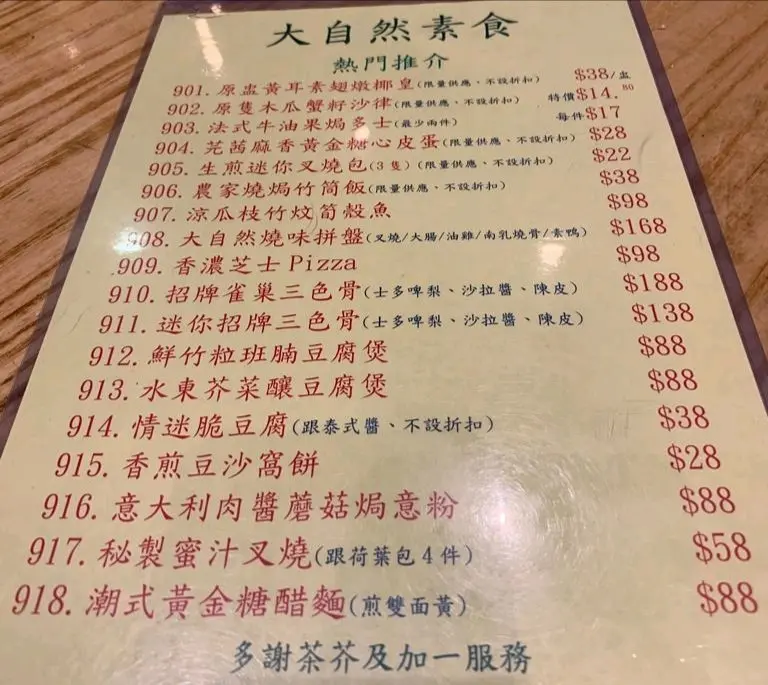 大自然素食
熱門推介
901. 原盅黃耳素翅燉椰皇(限量供應、不設折扣) $38/盅
902. 原隻木瓜蟹籽沙律(限量供應、不設折扣) 特價$14.80
903. 法式牛油果焗多士(最少兩件) 每件$17
904. 芫茜麻香黃金糖心皮蛋(限量供應、不設折扣) $28
905. 生煎迷你叉燒包(3隻)(限量供應、不設折扣) $22
906. 農家燒焗竹筒飯(限量供應、不設折扣) $38
907. 涼瓜枝竹炆筍殼魚 $98
908. 大自然燒味拼盤(叉燒/大腸/油雞/南乳燒骨/素鴨) $168
909. 香濃芝士Pizza $98
910. 招牌雀巢三色骨(士多啤梨、沙拉醬、陳皮) $188
911. 迷你招牌三色骨(士多啤梨、沙拉醬、陳皮) $138
912. 鮮竹粒班腩豆腐煲 $88
913. 水東芥菜釀豆腐煲 $88
914. 情迷脆豆腐(跟泰式醬、不設折扣) $38
915. 香煎豆沙窩餅 $28
916. 意大利肉醬蘑菇焗意粉 $88
917. 秘製蜜汁叉燒(跟荷葉包4件) $58
918. 潮式黃金糖醋麵(煎雙面黃) $88
多謝茶芥及加一服務